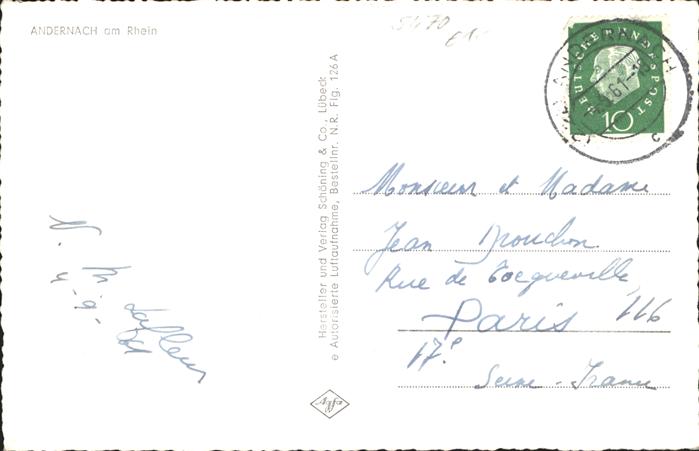 ANDERNACH am Rhein
5470
DEUTSCHE BUNDESPOST
10
ANDERNACH
61-18
c
Hersteller und Verlag Schöning & Co., Lübeck
e Autorisierte Luftaufnahme, Bestellnr. N.R. Flg. 126 A
Monsieur et Madame
Jean Drouchon
Rue de Tocqueville
116
Paris
17e
Seine-France